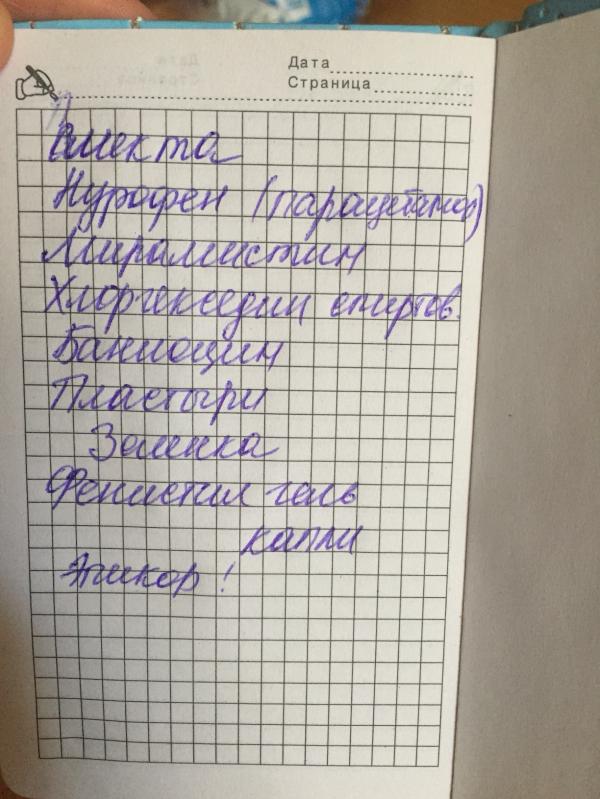 Дата
Страница
Смекта
Нурофен (парацетамол)
Мирамистин
Хлоргекседин спиртов.
Баниоцин
Пластыри
Зеленка
Фенистил гель
капли